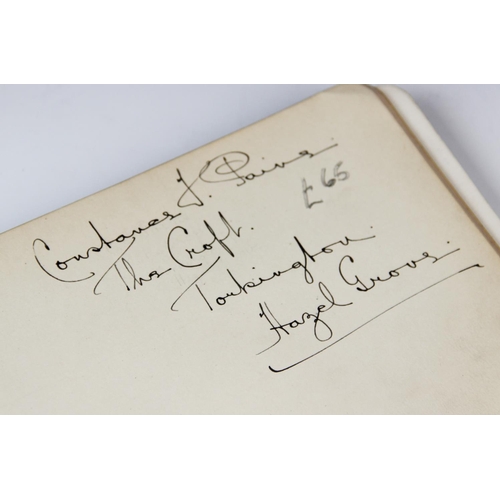 Constance J. Paine.
£65
The Croft.
Torkington.
Hazel Grove.